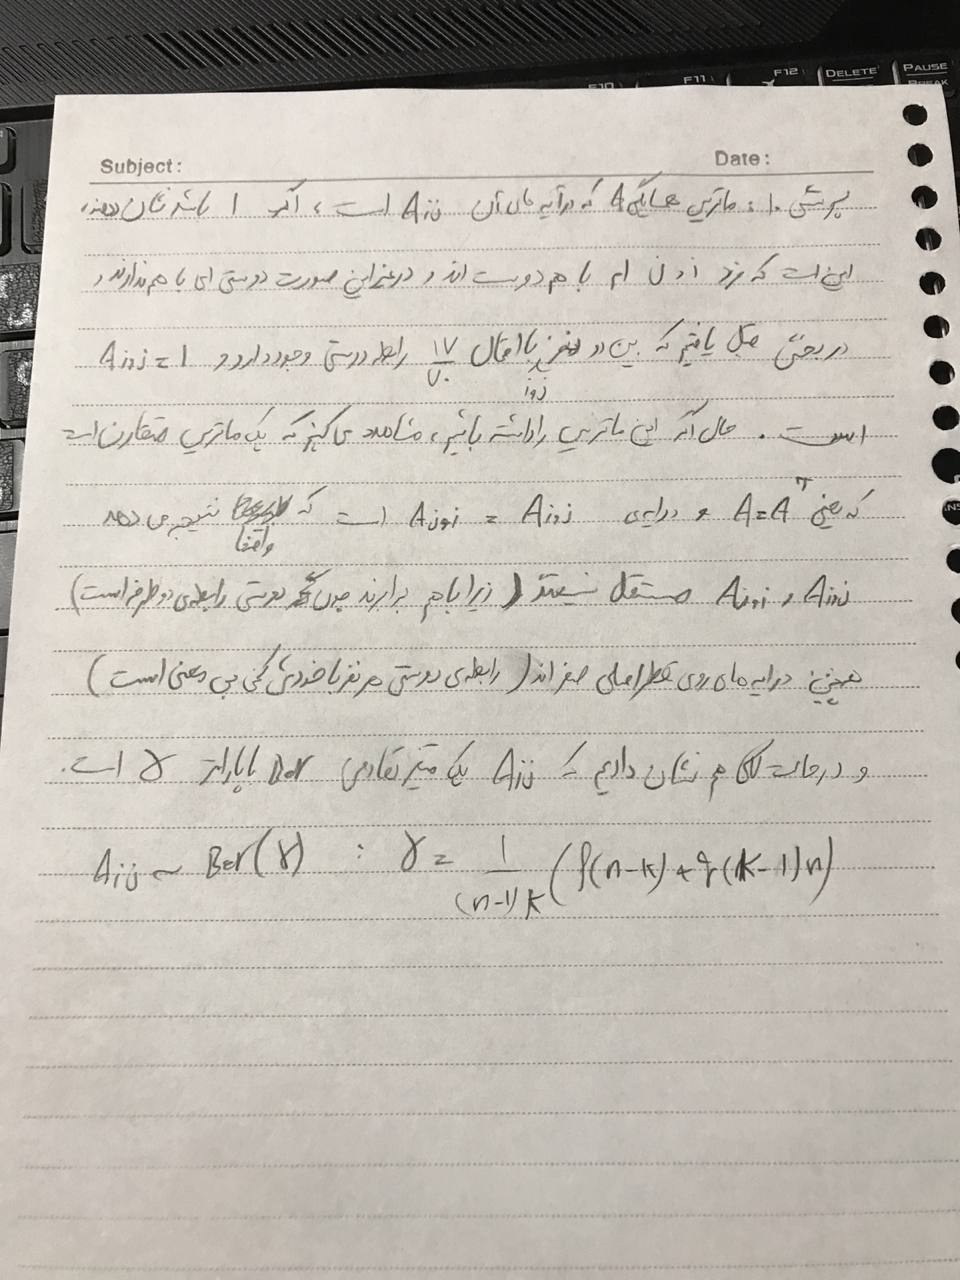 F10 F11 F12 DELETE PAUSE BREAK
Subject: Date:
پرسش ۱۰: ماتریس همسایگی A که درآیه های آن Aᵢ,ⱼ است، اگر 1 باشد نشان دهنده
این است که فرد i و j ام با هم دوست اند و در غیر این صورت دوستی ای با هم ندارند و
در بخش قبل یافتیم که بین دو نفر i و j با احتمال ۱۷/۷۰ رابطه دوستی وجود دارد و Aᵢ,ⱼ = 1
است. حال اگر این ماتریس را داشته باشیم، مشاهده می کنیم که یک ماتریس متقارن است
که یعنی A = Aᵀ و درایه ی Aⱼ,ᵢ = Aᵢ,ⱼ است که واقعا نتیجه می دهد
Aᵢ,ⱼ و Aⱼ,ᵢ مستقل نیستند (زیرا با هم برابرند چون دوستی رابطه ی دو طرفه است)
همچنین درایه های روی قطر اصلی صفر اند (رابطه ی دوستی هر نفر با خودش کمی بی معنی است)
و در حالت کلی هم نشان دادیم که Aᵢ,ⱼ یک متغیر تصادفی Ber با پارامتر γ است.
Aᵢ,ⱼ ~ Ber(γ) : γ = 1/((n-1)k) (p(n-k) + q(k-1)n)